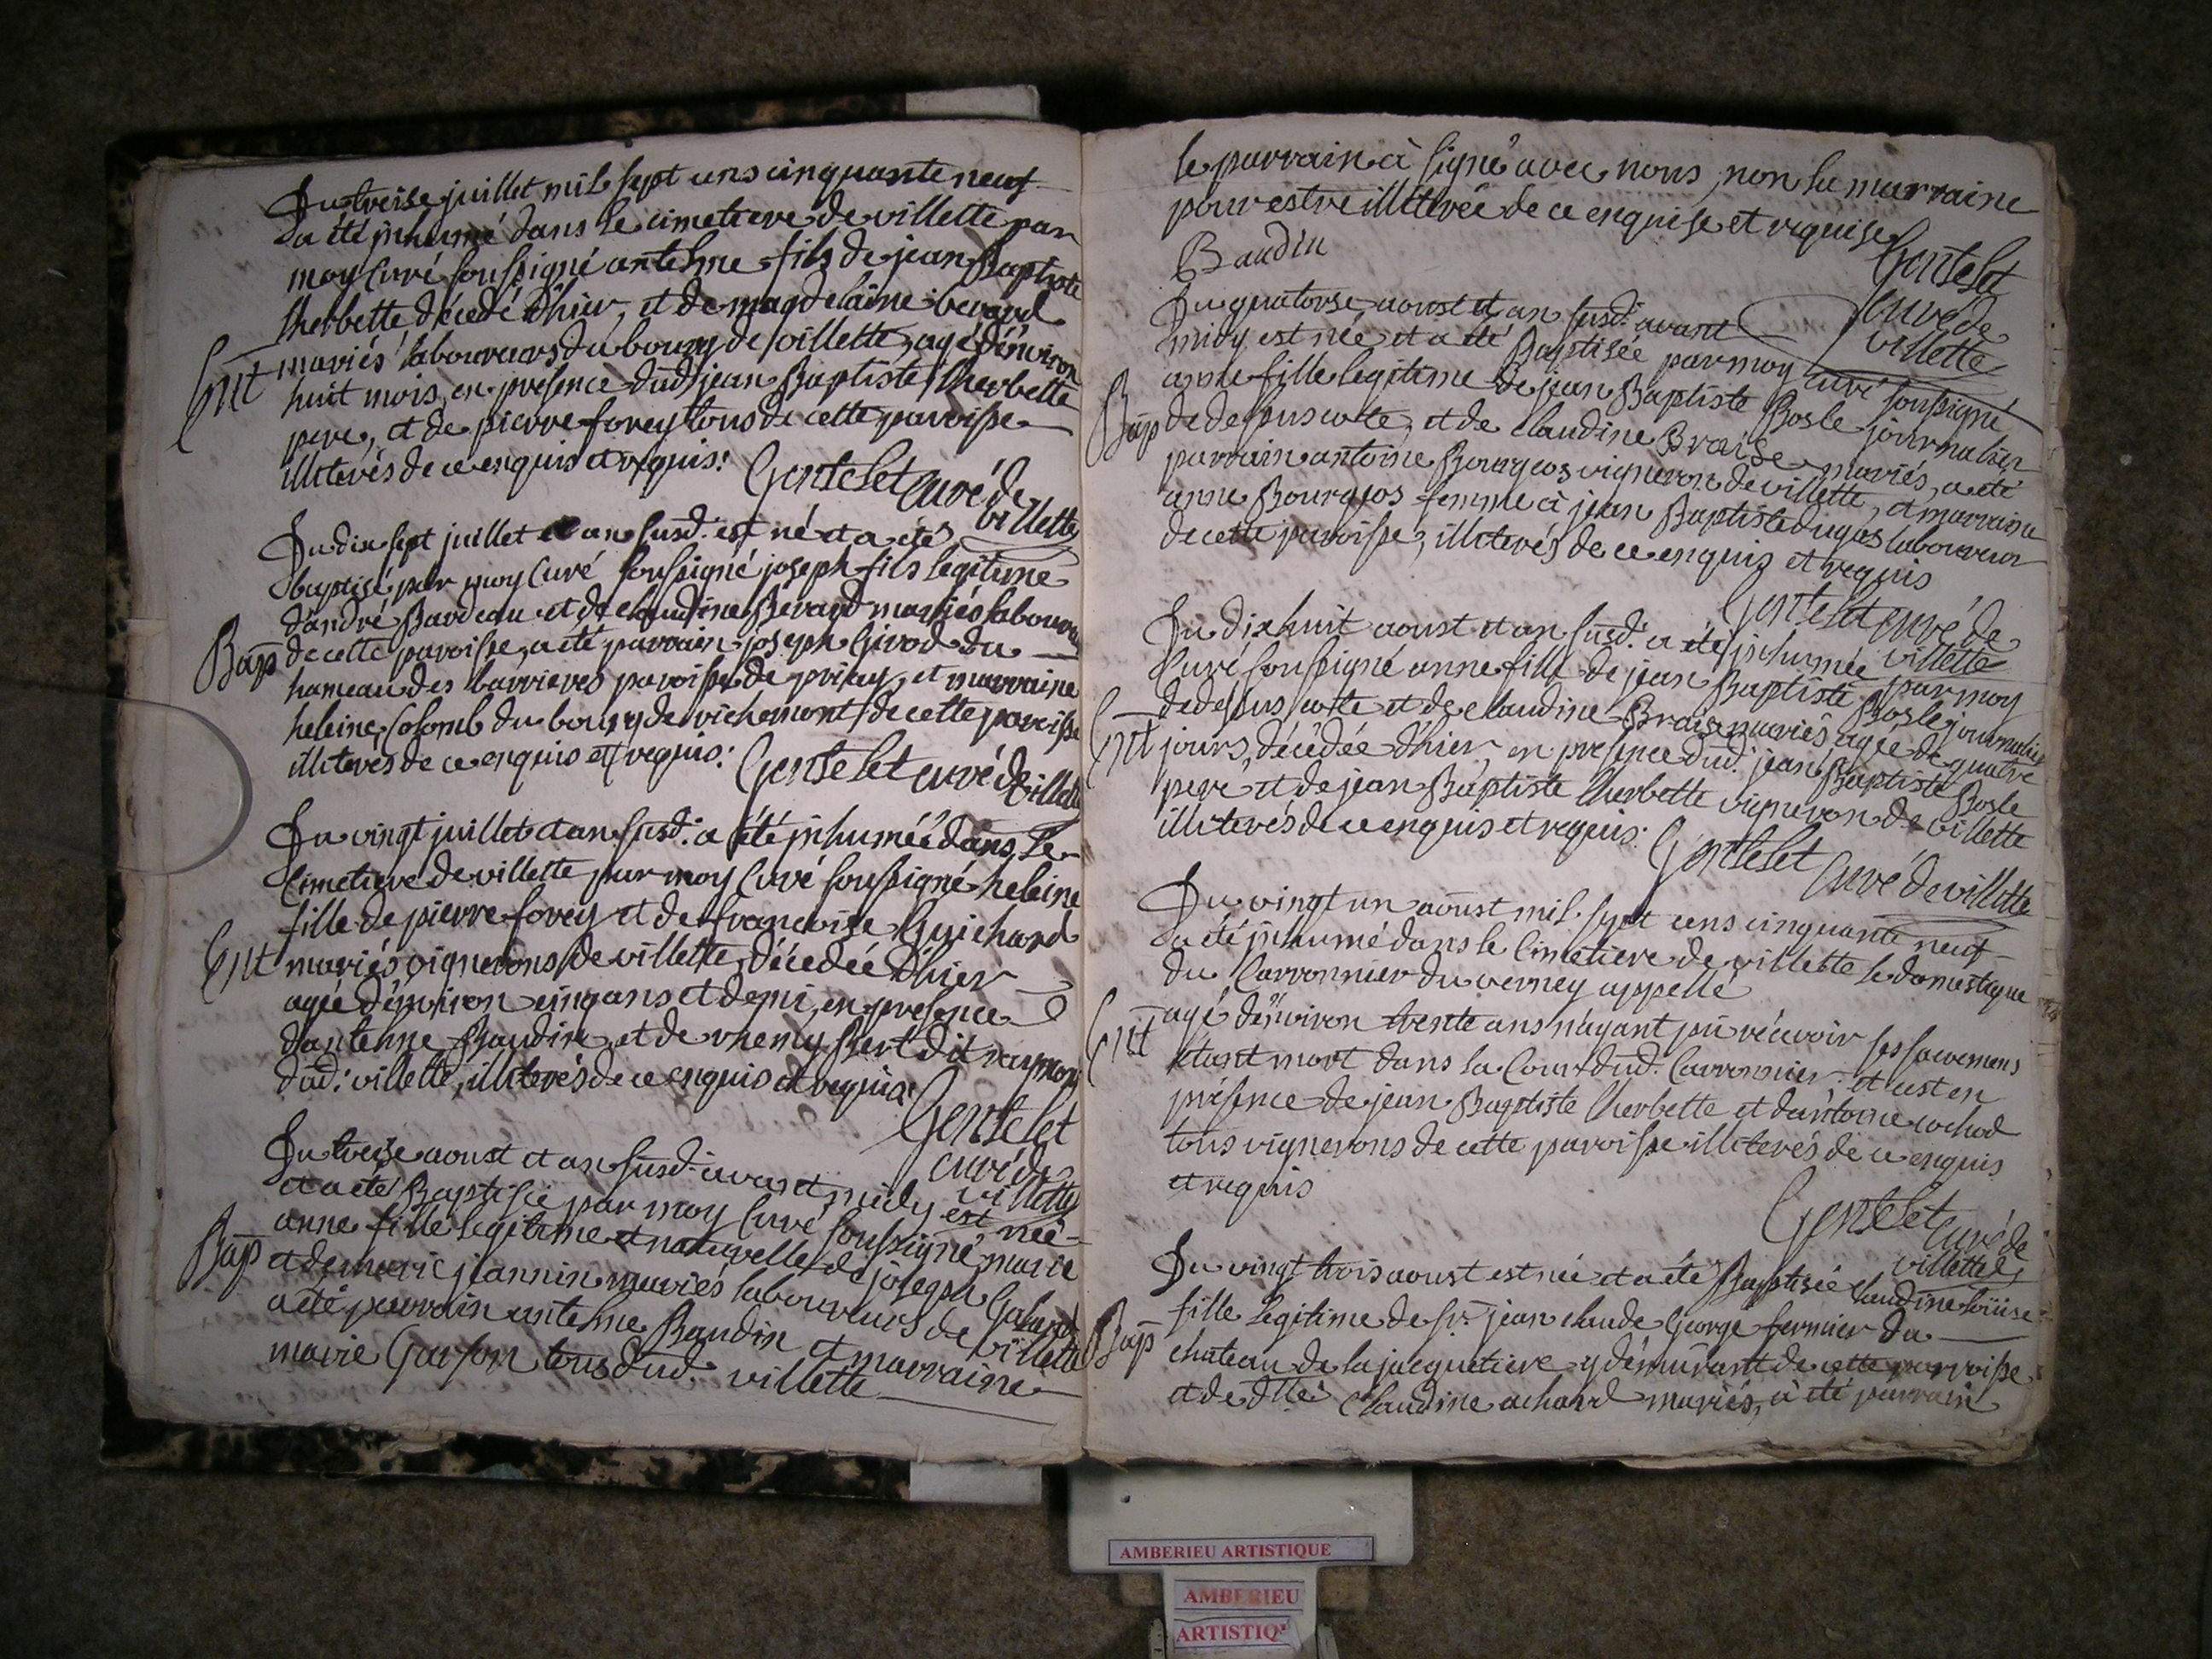 Du treise juillet mil sept cens cinquante neuf
a été inhumé dans le cimetiere de villette par
moy curé soussigné antelme fils de jean Baptiste
lherbette décedé d'hier, et de magdelaine berard
Ent mariés laboureurs du bourg de villette, agé d'environ
huit mois, en presence dud. jean Baptiste lherbette
pere, et de pierre forey tous de cette paroisse
illiterés de ce enquis et requis. Gentelet curé de
villette
Du dix sept juillet et an susd. est né et a été
baptisé par moy curé soussigné joseph fils legitime
d'andré Bardeau et de claudine Bérard mariés laboureurs
Bap de cette paroisse, a été parrain joseph Girod du
hameau des barrieres paroisse de priay, et marraine
heleine Colomb du bourg de richemont de cette paroisse
illiterés de ce enquis et requis. Gentelet curé de villette
Du vingt juillet et an susd. a été inhumée dans le
Cimetiere de villette par moy Curé soussigné heleine
fille de pierre forey et de françoise Guichard
Ent mariés vignerons de villette, décedée d'hier
agée d'environ cinq ans et demi, en presence
d'antelme Baudin et de rhemy Bert dit raymond
dud. villette, illiterés de ce enquis et requis.
Gentelet
curé de
villette
Du treise aoust et an susd. avant midy est née
et a été Baptisée par moy Curé soussigné marie
anne fille legitime et naturelle de joseph
Bap et de marie jeannin mariés laboureurs de villette
a été parrain antelme Baudin et marraine
marie Garson tous dud. villette
le parrain a signé avec nous, non la marraine
pour estre illiterée de ce enquise et requise
Baudin
Gentelet
curé de
villette
Du quatorse aoust et an susd. avant
midy est née et a été Baptisée par moy curé soussigné
anne fille legitime de jean Baptiste Bosle journalier
Bap de dessus coste, et de claudine Braise mariés, a été
parrain antoine Bourgeos vigneron de villette, et marraine
anne Bourgeos femme à jean Baptiste dugas laboureur
de cette paroisse, illiterés de ce enquis et requis
Gentelet curé de
villette
Du dix huit aoust et an susd. a été inhumée par moy
Curé soussigné anne fille de jean Baptiste Bosle journalier
de dessus coste et de claudine Braise mariés agée de quatre
Ent jours, décédée d'hier, en presence dud. jean Baptiste Bosle
pere et de jean Baptiste lherbette vigneron de villette
illiterés de ce enquis et requis. Gentelet Curé de villette
Du vingt un aoust mil sept cens cinquante neuf
a été inhumé dans le Cimetiere de villette le domestique
du Carronnier du verney appellé
Ent agé d'environ trente ans n'ayant pu récevoir ses sacremens
étant mort dans la Cour dud. Carronnier; et cest en
présence de jean Baptiste lherbette et d'antoine cochod
tous vignerons de cette paroisse illiterés de ce enquis
et requis
Gentelet Curé de
villette
Du vingt trois aoust est née et a été Baptisée claudine loüise
fille legitime de sr. jean claude George fermier du
Bap chateau de la jacquetiere y démeurant de cette parroisse
et de dlle. Claudine achard mariés, a été parrain
AMBERIEU ARTISTIQUE
AMBERIEU
ARTISTIQ